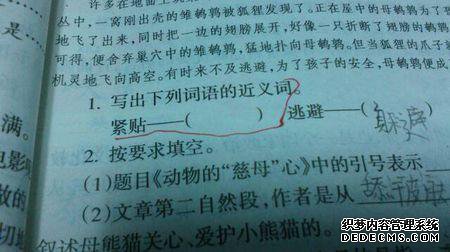 许多在地面上筑
丛中,一窝刚出壳的雏鹌鹑被狐狸发现了。正在屋中的母鹌鹑为了
是
地飞了出来,同时把一边的翅膀展开,好像一只折断了翅膀的鹌鹑
可得,便舍弃巢穴中的雏鹌鹑,猛地扑向母鹌鹑。但当狐狸的爪子
机灵地飞向高空。有时来不及逃避,为了孩子的安全,母鹌鹑便成
1. 写出下列词语的近义词。
满。
紧贴——( ) 逃避——(躲避)
电影
2. 按要求填空。
放的
(1)题目《动物的“慈母”心》中的引号表示
切地
(2)文章第二自然段,作者是从
叙述母熊猫关心、爱护小熊猫的。
织梦内容管理系统
DEDECMS.COM